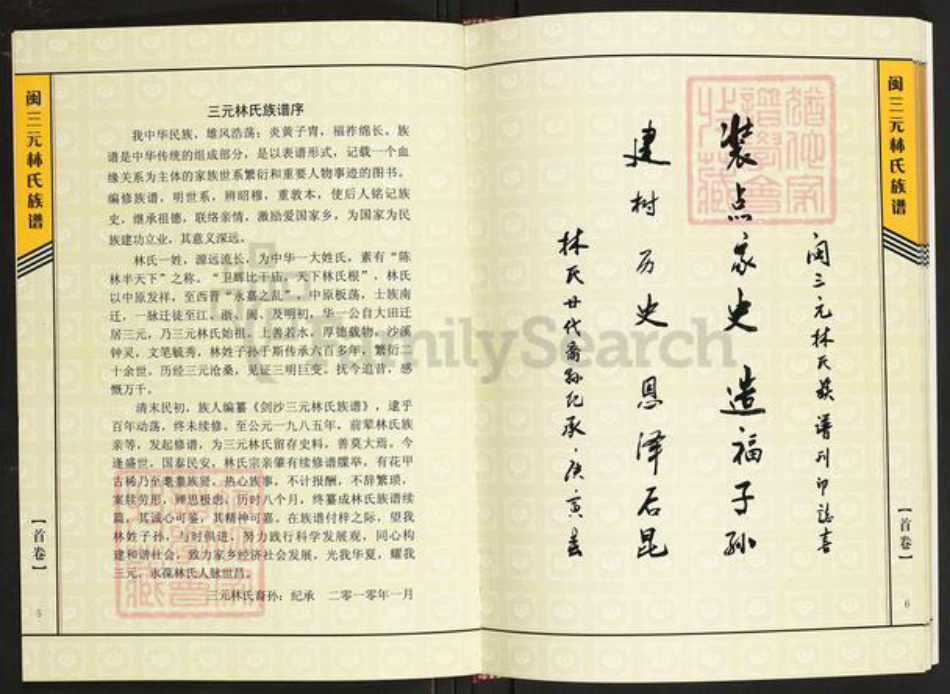 闽三元林氏族谱
三元林氏族谱序
我中华民族，雄风浩荡；炎黄子胄，福祚绵长。族
谱是中华传统的组成部分，是以表谱形式，记载一个血
缘关系为主体的家族世系繁衍和重要人物事迹的图书。
编修族谱，明世系，辨昭穆，重敦本，使后人铭记族
史，继承祖德，联络亲情，激励爱国家乡，为国家为民
族建功立业，其意义深远。
林氏一姓，源远流长，为中华一大姓氏，素有“陈
林半天下”之称。“卫辉比干庙，天下林氏根”，林氏
以中原发祥，至西晋“永嘉之乱”，中原板荡，士族南
迁，一脉迁徒至江、浙、闽、及明初，华一公自大田迁
居三元，乃三元林氏始祖。上善若水，厚德载物，沙溪
钟灵，文笔毓秀，林姓子孙于斯传承六百多年，繁衍二
十余世，历经三元沧桑，见证三明巨变。抚今追昔，感
慨万千。
清末民初，族人编纂《剑沙三元林氏族谱》，逮乎
百年动荡，终未续修。至公元一九八五年，前辈林氏族
亲等，发起修谱，为三元林氏留存史料，善莫大焉。今
逢盛世，国泰民安，林氏宗亲肇有续修谱牒举，有花甲
古稀乃至耄耋族贤，热心族事，不计报酬，不辞繁琐，
案牍劳形，殚思极虑，历时八个月，终纂成林氏族谱续
篇，其诚心可鉴，其精神可嘉。在族谱付梓之际，望我
林姓子孙，与时俱进，努力践行科学发展观，同心构
建和谐社会，致力家乡经济社会发展，光我华夏，耀我
三元，永葆林氏人脉世昌。
三元林氏裔孙：纪承 二零一零年一月
【首卷】
5
闽三元林氏族谱
闽三元林氏族谱刊印誌喜
装点家史 造福子孙
建树历史 恩泽后昆
林氏廿代裔孙纪承·庚寅春
【首卷】
6
FamilySearch